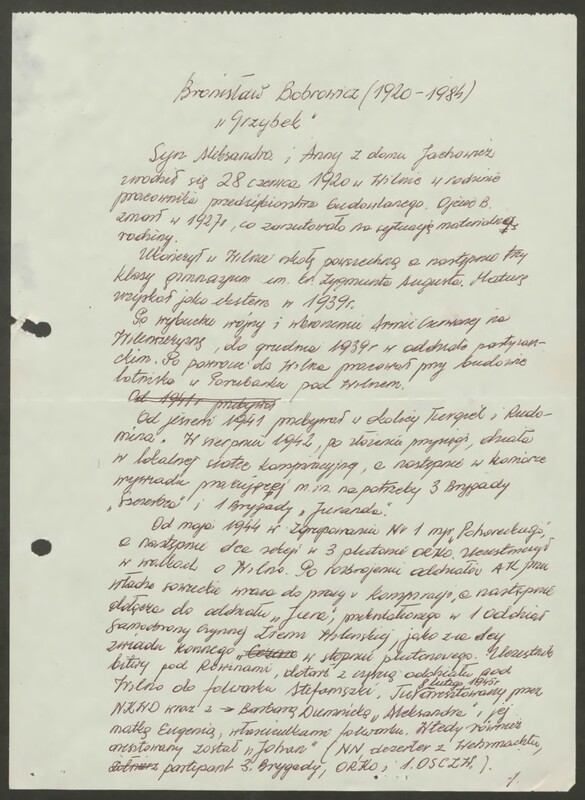 Bronisław Bobrowicz (1920-1984)
"Grzybek"
Syn Aleksandra i Anny z domu Jachowicz
urodził się 28 czerwca 1920 w Wilnie w rodzinie
pracownika przedsiębiorstwa budowlanego. Ojciec B.
zmarł w 1927r, co zarzutowało na sytuację materialną
rodziny.
Ukończył w Wilnie szkołę powszechną a następnie trzy
klasy gimnazjum im. kr. Zygmunta Augusta. Maturę
uzyskał jako ekstern w 1939r.
Po wybuchu wojny i wkroczeniu Armii Czerwonej na
Wileńszczyznę, do grudnia 1939r w oddziale partyzan-
ckim. Po powrocie do Wilna pracował przy budowie
lotniska w Porubanku pod Wilnem.
Od 1941r przebywał
Od jesieni 1941 przebywał w okolicy Turgiel i Rudo-
mina. W sierpniu 1942, po złożeniu przysięgi, działa
w lokalnej siatce konspiracyjnej, a następnie w komórce
wywiadu pracującej m.in. na potrzeby 3 Brygady
"Szczerbca" i 1 Brygady "Juranda".
Od maja 1944 w Zgrupowaniu Nr 1 mjr. "Pohoreckiego",
a następnie dca sekcji w 3 plutonie ORKO. Uczestniczył
w walkach o Wilno. Po rozbrojeniu oddziałów AK przez
władze sowieckie wraca do pracy w konspiracji, a następnie
dołącza do oddziału "Jura", przekształconego w 1 Oddział
Samoobrony Czynnej Ziemi Wileńskiej, jako z-ca dcy
zwiadu konnego, w stopniu plutonowego. Uczestnik
bitwy pod Rowinami, dotarł z częścią oddziału pod
Wilno do folwarku Stefaniszki. Tu 8 lutego 1945r aresztowany przez
NKWD wraz z Barbarą Dumnicką "Aleksandra", i jej
matką Eugenią, właścicielkami folwarku. Wtedy również
aresztowany został "Johan" (NN dezerter z Wehrmachtu,
żołnierz partyzant 3. Brygady, ORKO i 1. OSCZW.).
./.